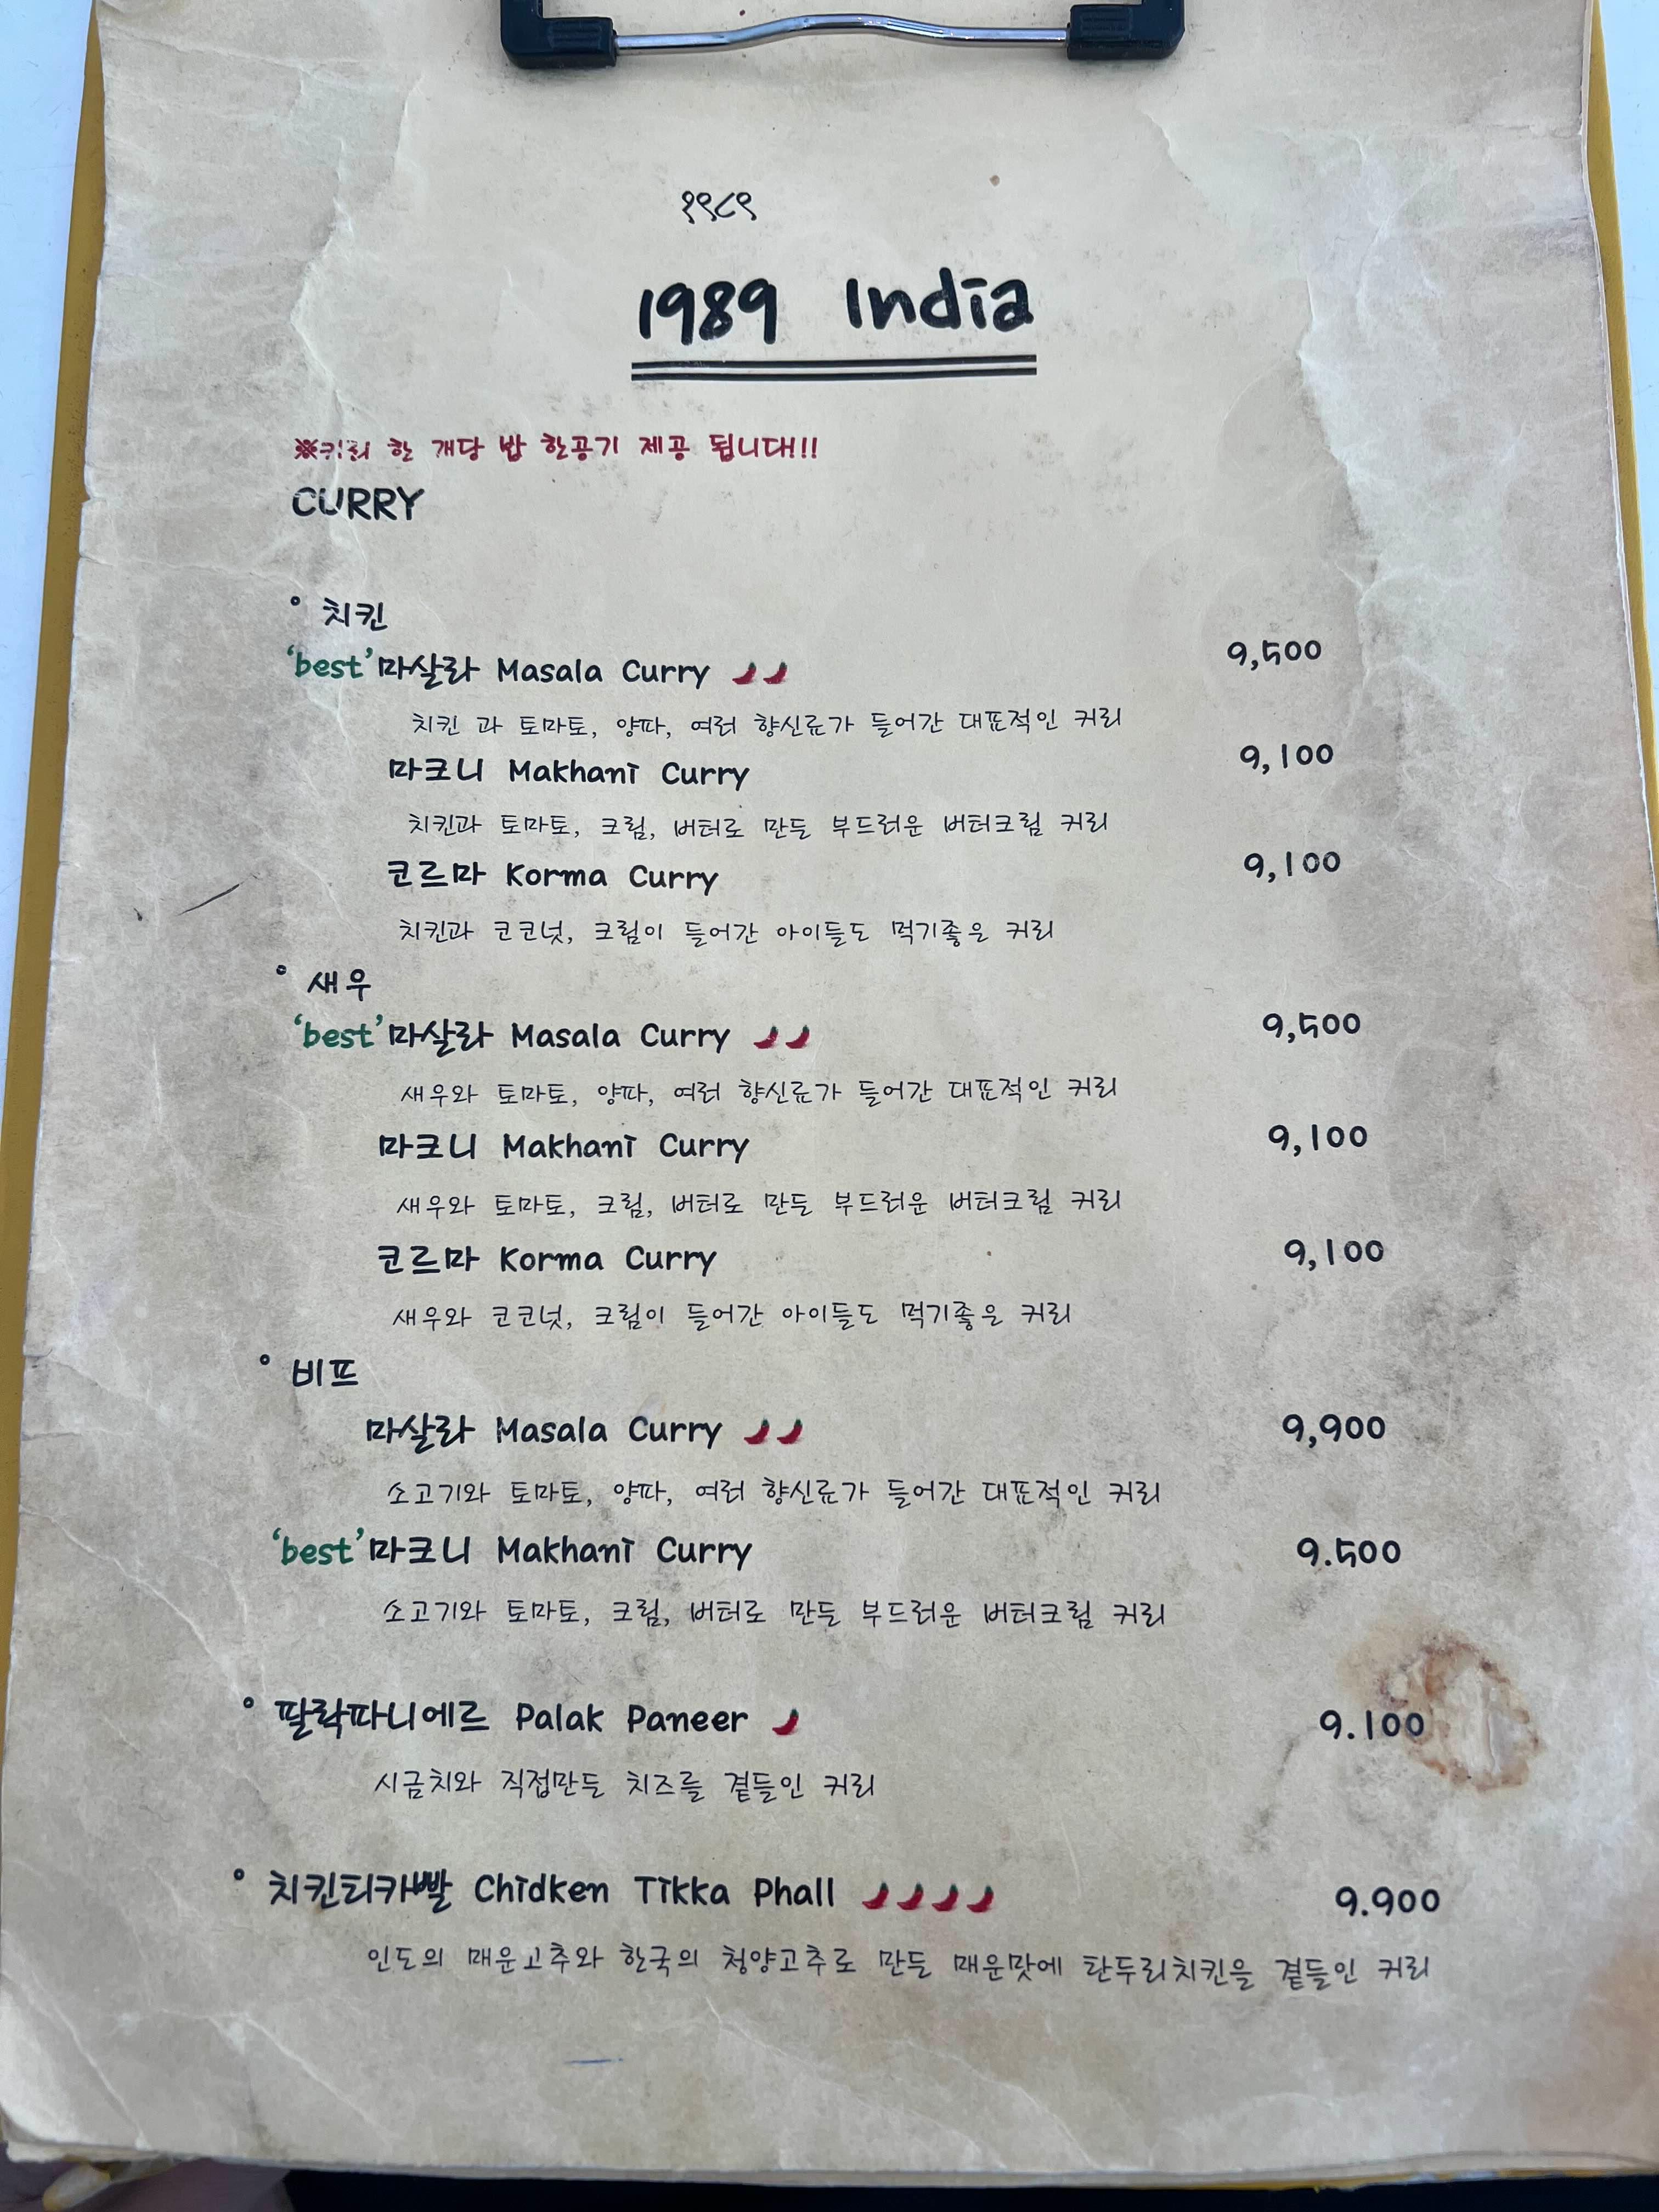 १९८९
1989 India
※커리 한 개당 밥 한공기 제공 됩니다!!!
CURRY
° 치킨
'best' 마살라 Masala Curry 9,500
치킨 과 토마토, 양파, 여러 향신료가 들어간 대표적인 커리
마크니 Makhani Curry 9,100
치킨과 토마토, 크림, 버터로 만든 부드러운 버터크림 커리
코르마 Korma Curry 9,100
치킨과 코코넛, 크림이 들어간 아이들도 먹기좋은 커리
° 새우
'best' 마살라 Masala Curry 9,500
새우와 토마토, 양파, 여러 향신료가 들어간 대표적인 커리
마크니 Makhani Curry 9,100
새우와 토마토, 크림, 버터로 만든 부드러운 버터크림 커리
코르마 Korma Curry 9,100
새우와 코코넛, 크림이 들어간 아이들도 먹기좋은 커리
° 비프
마살라 Masala Curry 9,900
소고기와 토마토, 양파, 여러 향신료가 들어간 대표적인 커리
'best' 마크니 Makhani Curry 9.500
소고기와 토마토, 크림, 버터로 만든 부드러운 버터크림 커리
° 팔락파니에르 Palak Paneer 9.100
시금치와 직접만든 치즈를 곁들인 커리
° 치킨티카빨 Chidken Tikka Phall 9.900
인도의 매운고추와 한국의 청양고추로 만든 매운맛에 탄두리치킨을 곁들인 커리